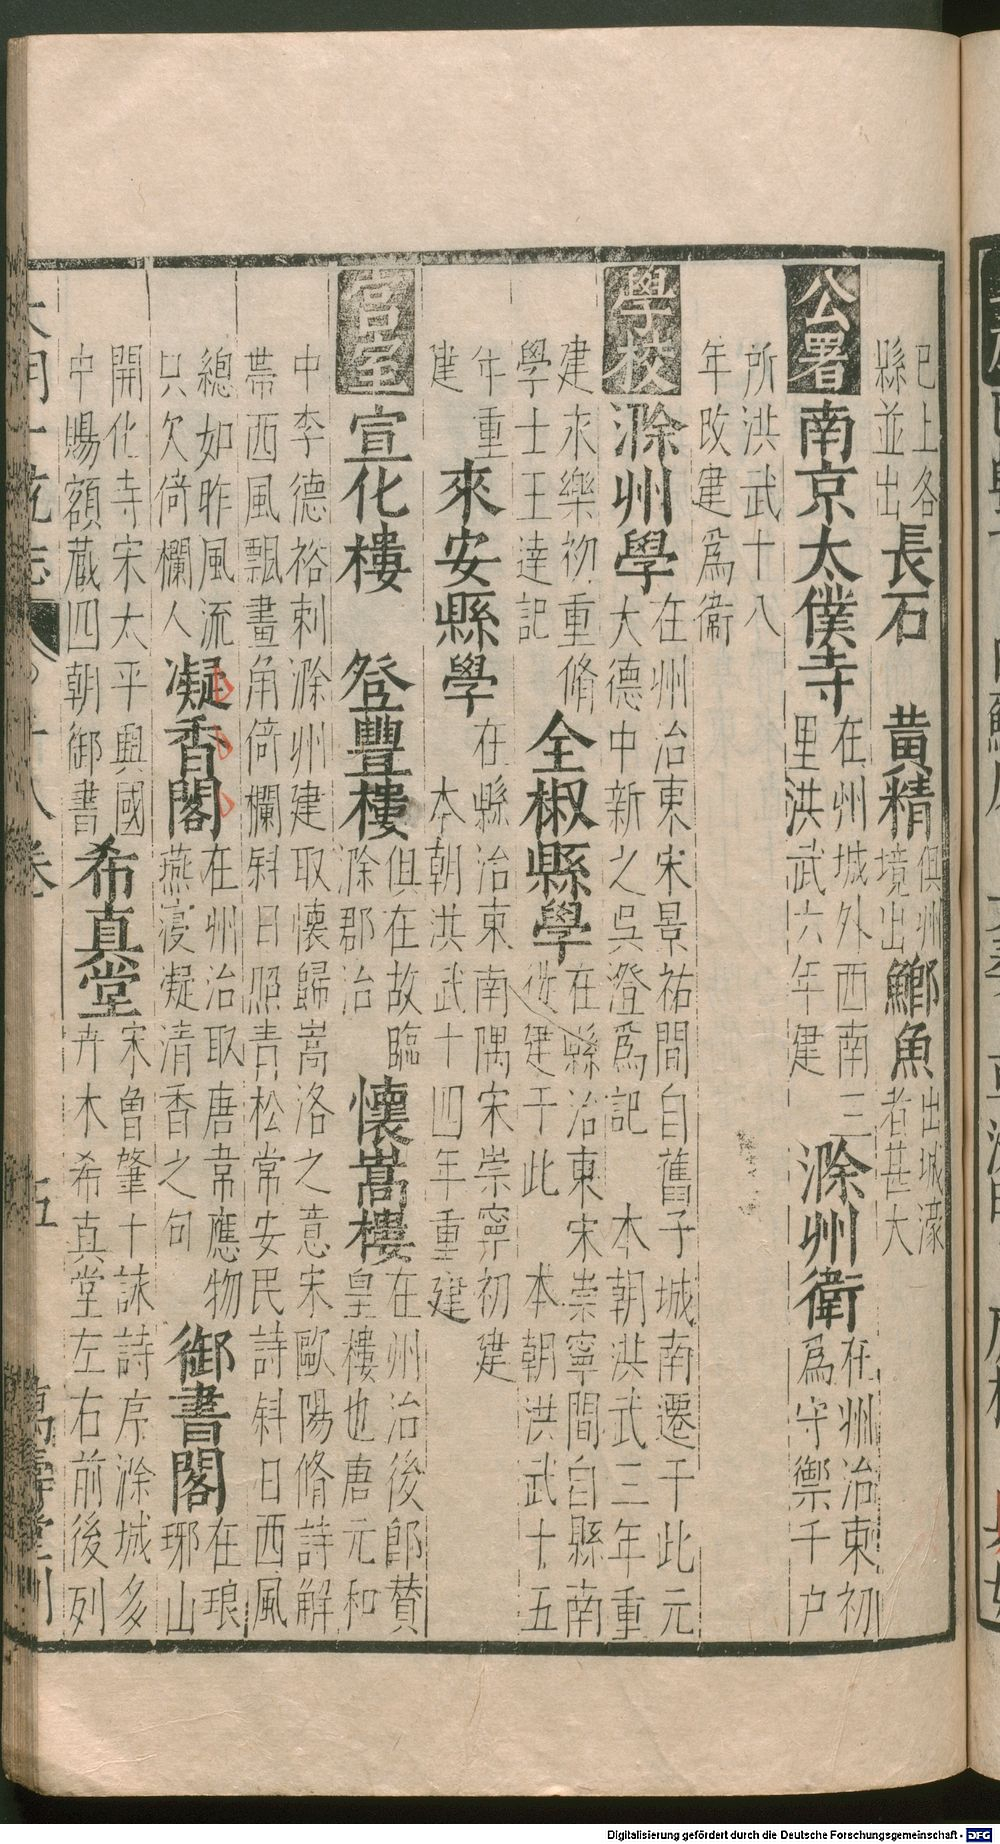 已上各縣並出 長石 黃精 俱州境出 鯽魚 出城濠者甚大
公署 南京太僕寺 在州城外西南三里洪武六年建 滁州衛 在州治東初爲守禦千户
所洪武十八年改建爲衛
學校 滁州學 在州治東宋景祐間自舊子城南遷于此元大德中新之吳澄爲記 本朝洪武三年重
建永樂初重脩學士王達記 全椒縣學 在縣治東宋崇寧間自縣南徙建于此 本朝洪武十五
年重建 來安縣學 在縣治東南隅宋崇寧初建 本朝洪武十四年重建
宮室 宣化樓 登豐樓 俱在故臨滁郡治 懷嵩樓 在州治後即贊皇樓也唐元和
中李德裕刺滁州建取懷歸嵩洛之意宋歐陽脩詩解帶西風飄畫角倚欄斜日照青松常安民詩斜日西風
總如昨風流只欠倚欄人 凝香閣 在州治取唐韋應物燕寢凝清香之句 御書閣 在琅琊山
開化寺宋太平興國中賜額藏四朝御書 希真堂 宋魯肇十詠詩序滁城多卉木希真堂左右前後列
大明一統志 十八卷 五 萬壽堂刊
Digitalisierung gefördert durch die Deutsche Forschungsgemeinschaft - DFG